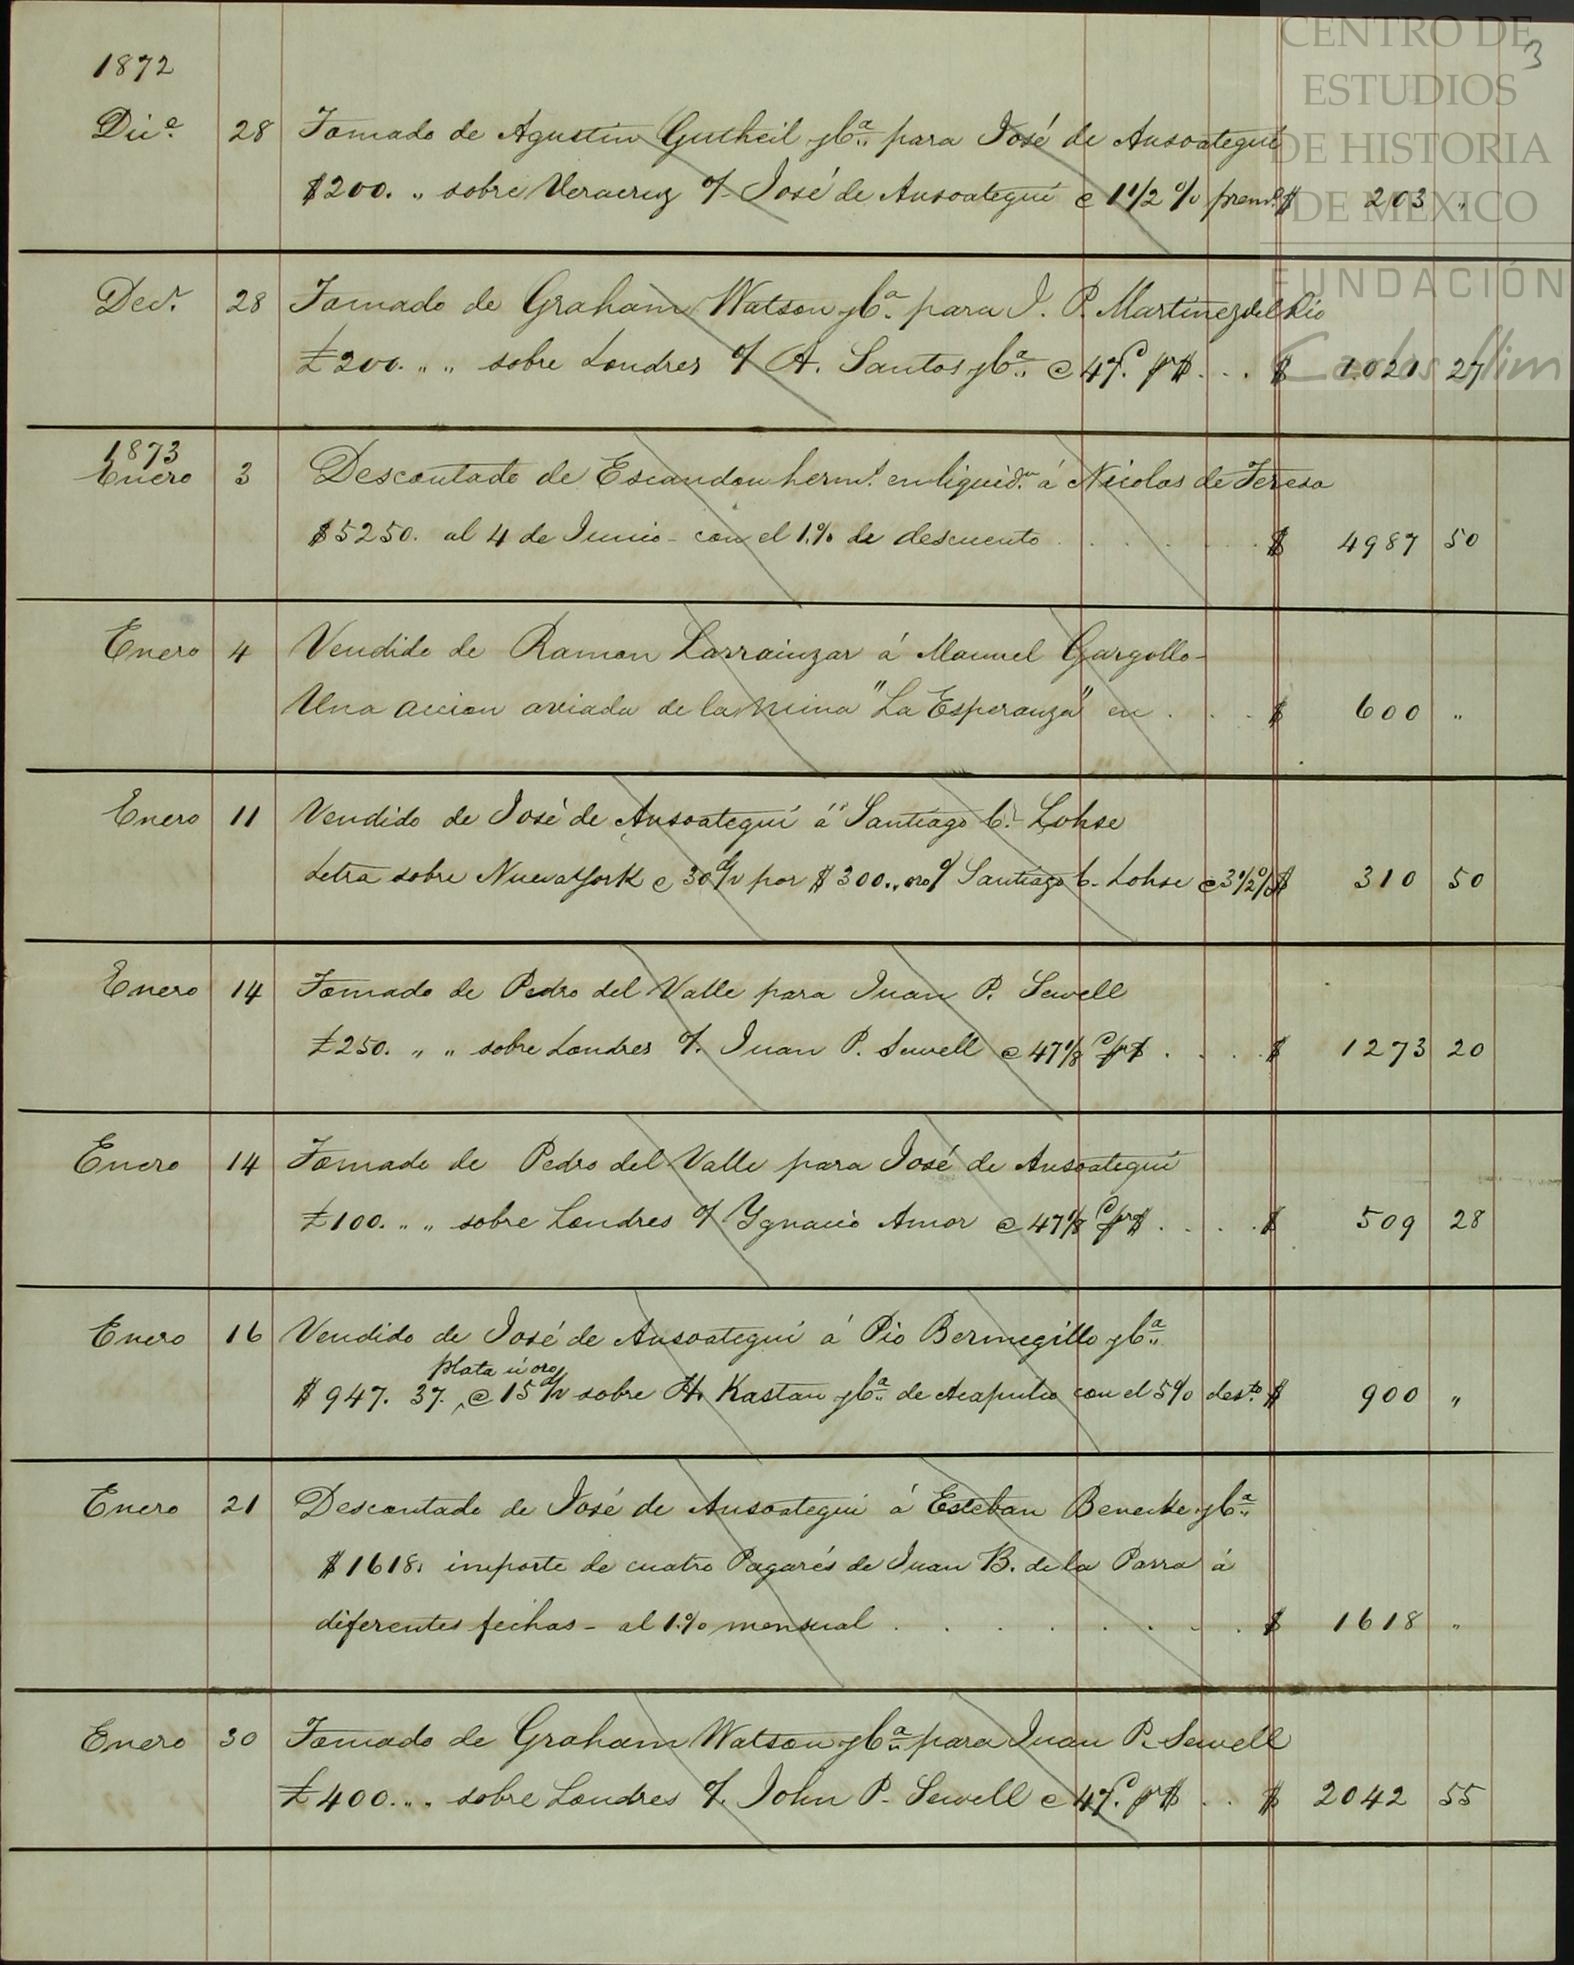 CENTRO DE
ESTUDIOS
DE HISTORIA
DE MÉXICO
FUNDACIÓN
Carlos Slim
3
1872
Dice. 28 Tomado de Agustin Gutheil yCa.. para José de Ansoategui
$200. „ sobre Veracruz o/ José de Ansoategui @ 1 1/2 % premo. $ 203 „
Decr. 28 Tomado de Graham Watson yCa. para J. P. Martinez del Rio
£200. „ „ sobre Londres o/ A. Santos yCa.. @ 47p. pr $ . . . $ 1.021 27
1873
Enero 3 Descontado de Escandon herms. en liquidn. á Nicolas de Teresa
$5250. al 4 de Junio - con el 1.% de descuento . . . . . . $ 4987 50
Enero 4 Vendido de Ramon Larrainzar á Manuel Gargollo -
Una accion aviada de la mina "La Esperanza" en . . . $ 600 „
Enero 11 Vendido de José de Ansoategui á Santiago C. Lohse
Letra sobre Nueva York @ 30 d/v por $ 300.„ oro o/ Santiago C. Lohse @ 3 1/2 % $ 310 50
Enero 14 Tomado de Pedro del Valle para Juan P. Sewell
£250. „ „ sobre Londres o/. Juan P. Sewell @ 47 1/8 p pr $ . . . . $ 1273 20
Enero 14 Tomado de Pedro del Valle para José de Ansoategui
£100. „ „ sobre Londres o/ Ygnacio Amor @ 47 1/8 p pr $ . . . . $ 509 28
Enero 16 Vendido de José de Ansoategui á Pio Bermegillo yCa..
plata ú oro
$ 947. 37. @ 15 d/v sobre H. Kastan yCa.. de Acapulco con el 5% desto. $ 900 „
Enero 21 Descontado de José de Ansoategui á Esteban Benecke yCa..
$1618. importe de cuatro Pagarés de Juan B. de la Parra á
diferentes fechas - al 1.% mensual . . . . . . . . $ 1618 „
Enero 30 Tomado de Graham Watson yCa.. para Juan P. Sewell
£400.„ „ sobre Londres o/. John P. Sewell @ 47p. pr $ . . $ 2042 55